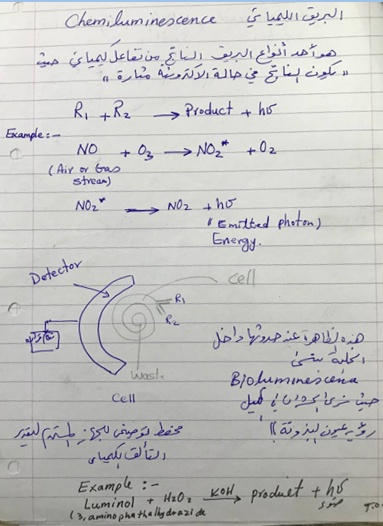 Chemiluminescence البريق الكيميائي
هو أحد أنواع البريق الناتج من تفاعل كيميائي حيث
يكون الناتج في حالة الكترونية مثارة "
R1 + R2 → Product + hσ
Example:-
NO + O3 → NO2* + O2
(Air or Gas
stream)
NO2* → NO2 + hσ
"Emitted photon)
Energy.
Detector
cell
R1
R2
Waste
Cell
هذه الظاهرة عند حدوثها داخل
الخلية تسمى
Bioluminescence
حيث نرى الحشرات في الليل
مخطط توضيحي للجهاز المستخدم لتقدير
التألق الكيميائي
Example :-
Luminol + H2O2 KOH → product + hσ
(3, aminophathalhydrazide
ضوء